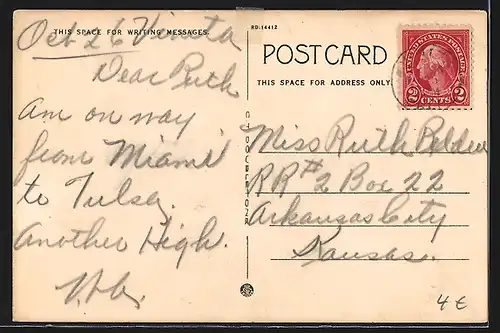 THIS SPACE FOR WRITING MESSAGES.
Oct 26 Vinita
Dear Ruth
Am on way
from Miami
to Tulsa.
Another High.
RD-14412
POST CARD
THIS SPACE FOR ADDRESS ONLY
UNITED STATES POSTAGE
2 CENTS 2
Miss Ruth
RR#2 Box 22
Arkansas City
Kansas.
4 €